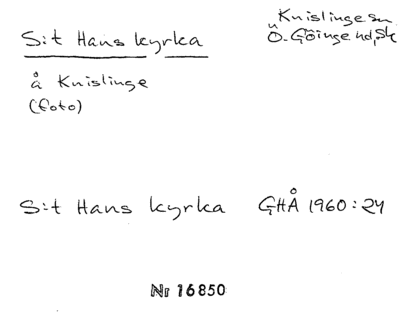 S:t Hans kyrka
Knislinge sn
Ö. Göinge hd, Sk
å Knislinge
(foto)
S:t Hans kyrka GHÅ 1960:24
Nr 16850